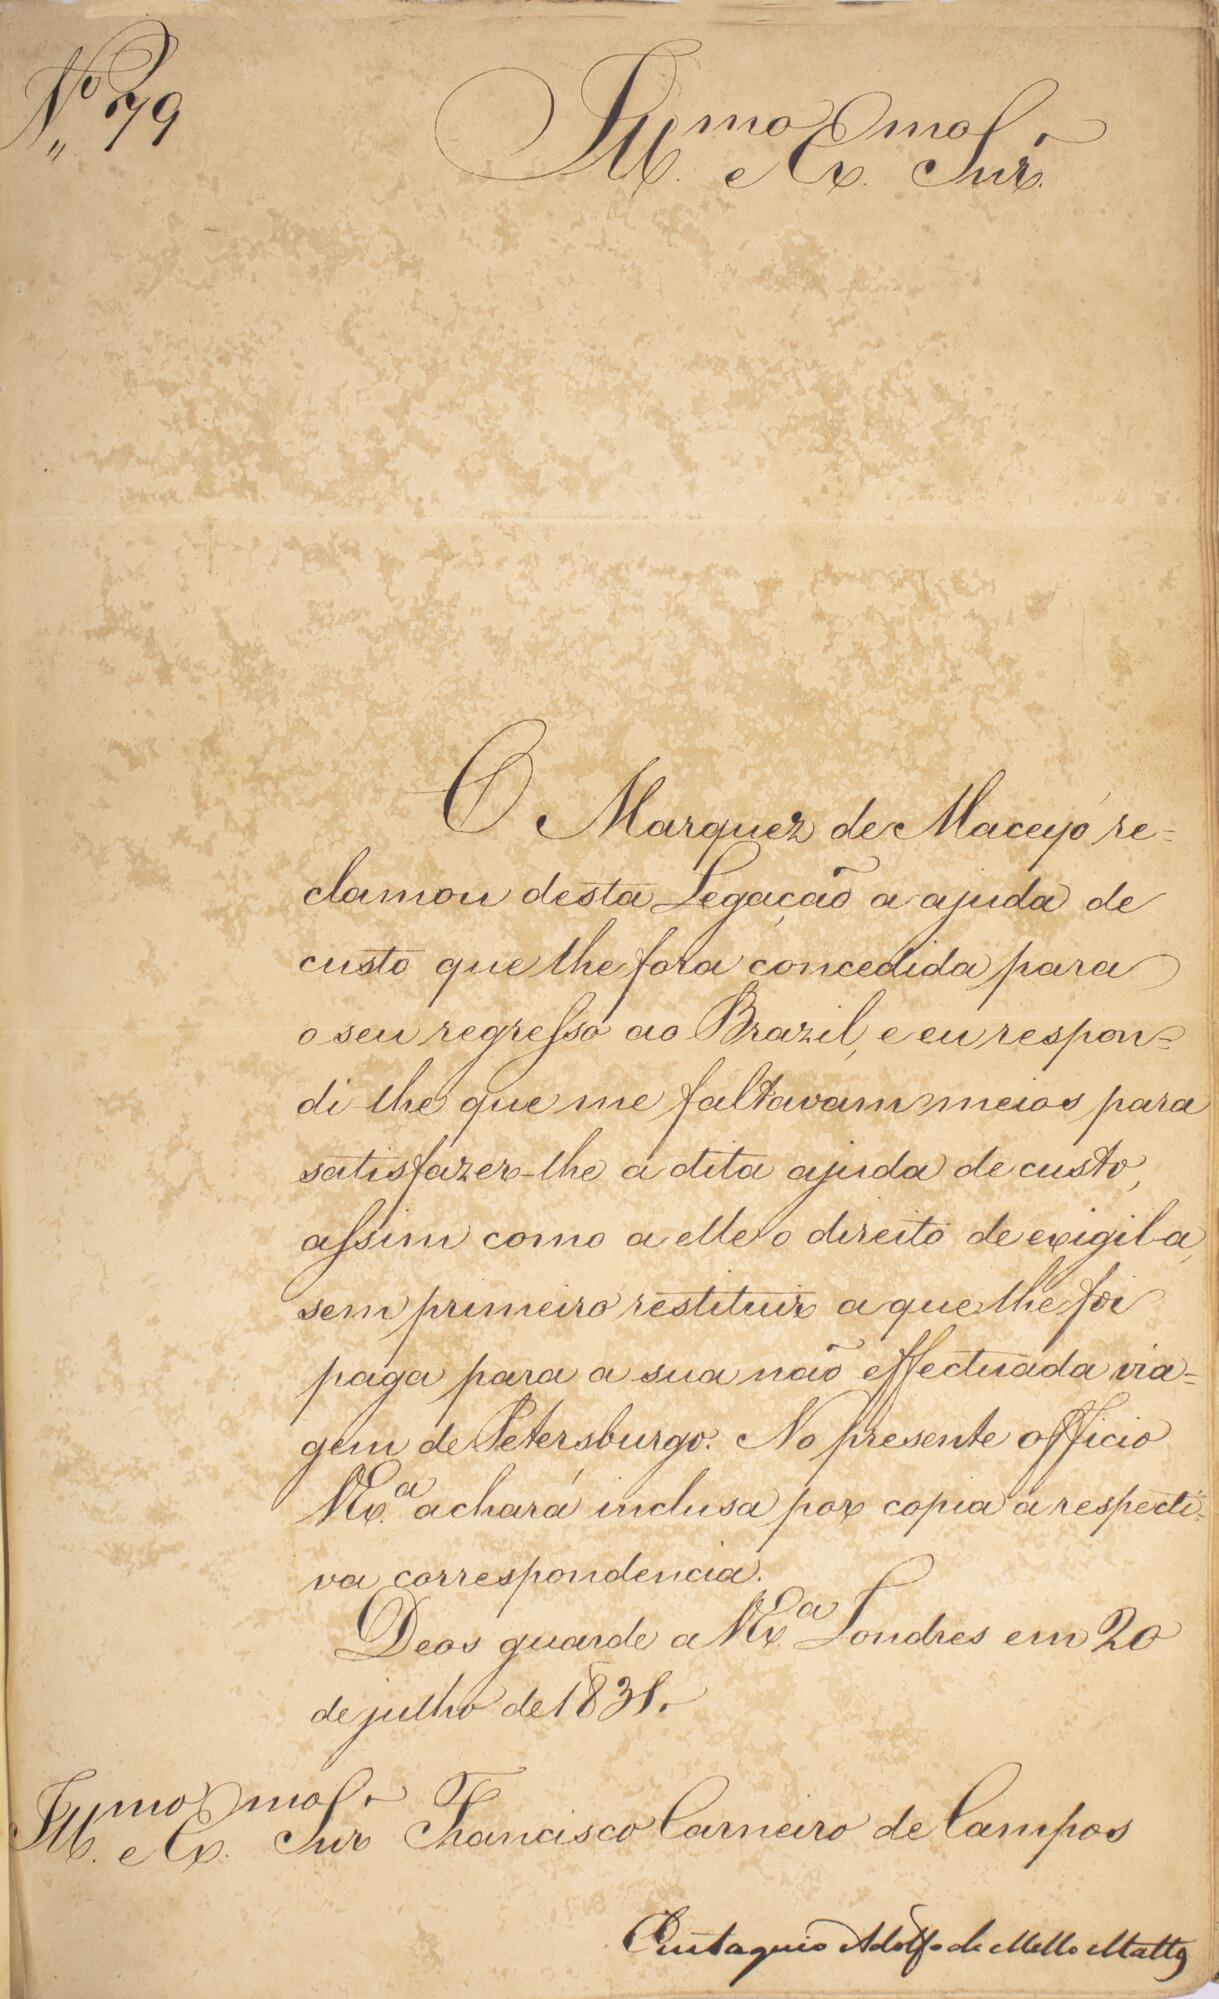 Nº 79
Illmo e Exmo Snr.
O Marquez de Maceyó re=
clamou desta Legação a ajuda de
custo que lhe fora concedida para
o seu regresso ao Brazil, e eu respon=
di-lhe que me faltavam meios para
satisfazer-lhe a dita ajuda de custo,
assim como a elle o direito de exigil-a,
sem primeiro restituir a que lhe foi
paga para a sua não effectuada via=
gem de Petersburgo. No presente officio
VExa. achará inclusa por copia a respecti=
va correspondencia.
Deos guarde a VExa. Londres em 20
de julho de 1831.
Illmo e Exmo Snr Francisco Carneiro de Campos
Eustaquio Adolfo de Mello Mattos